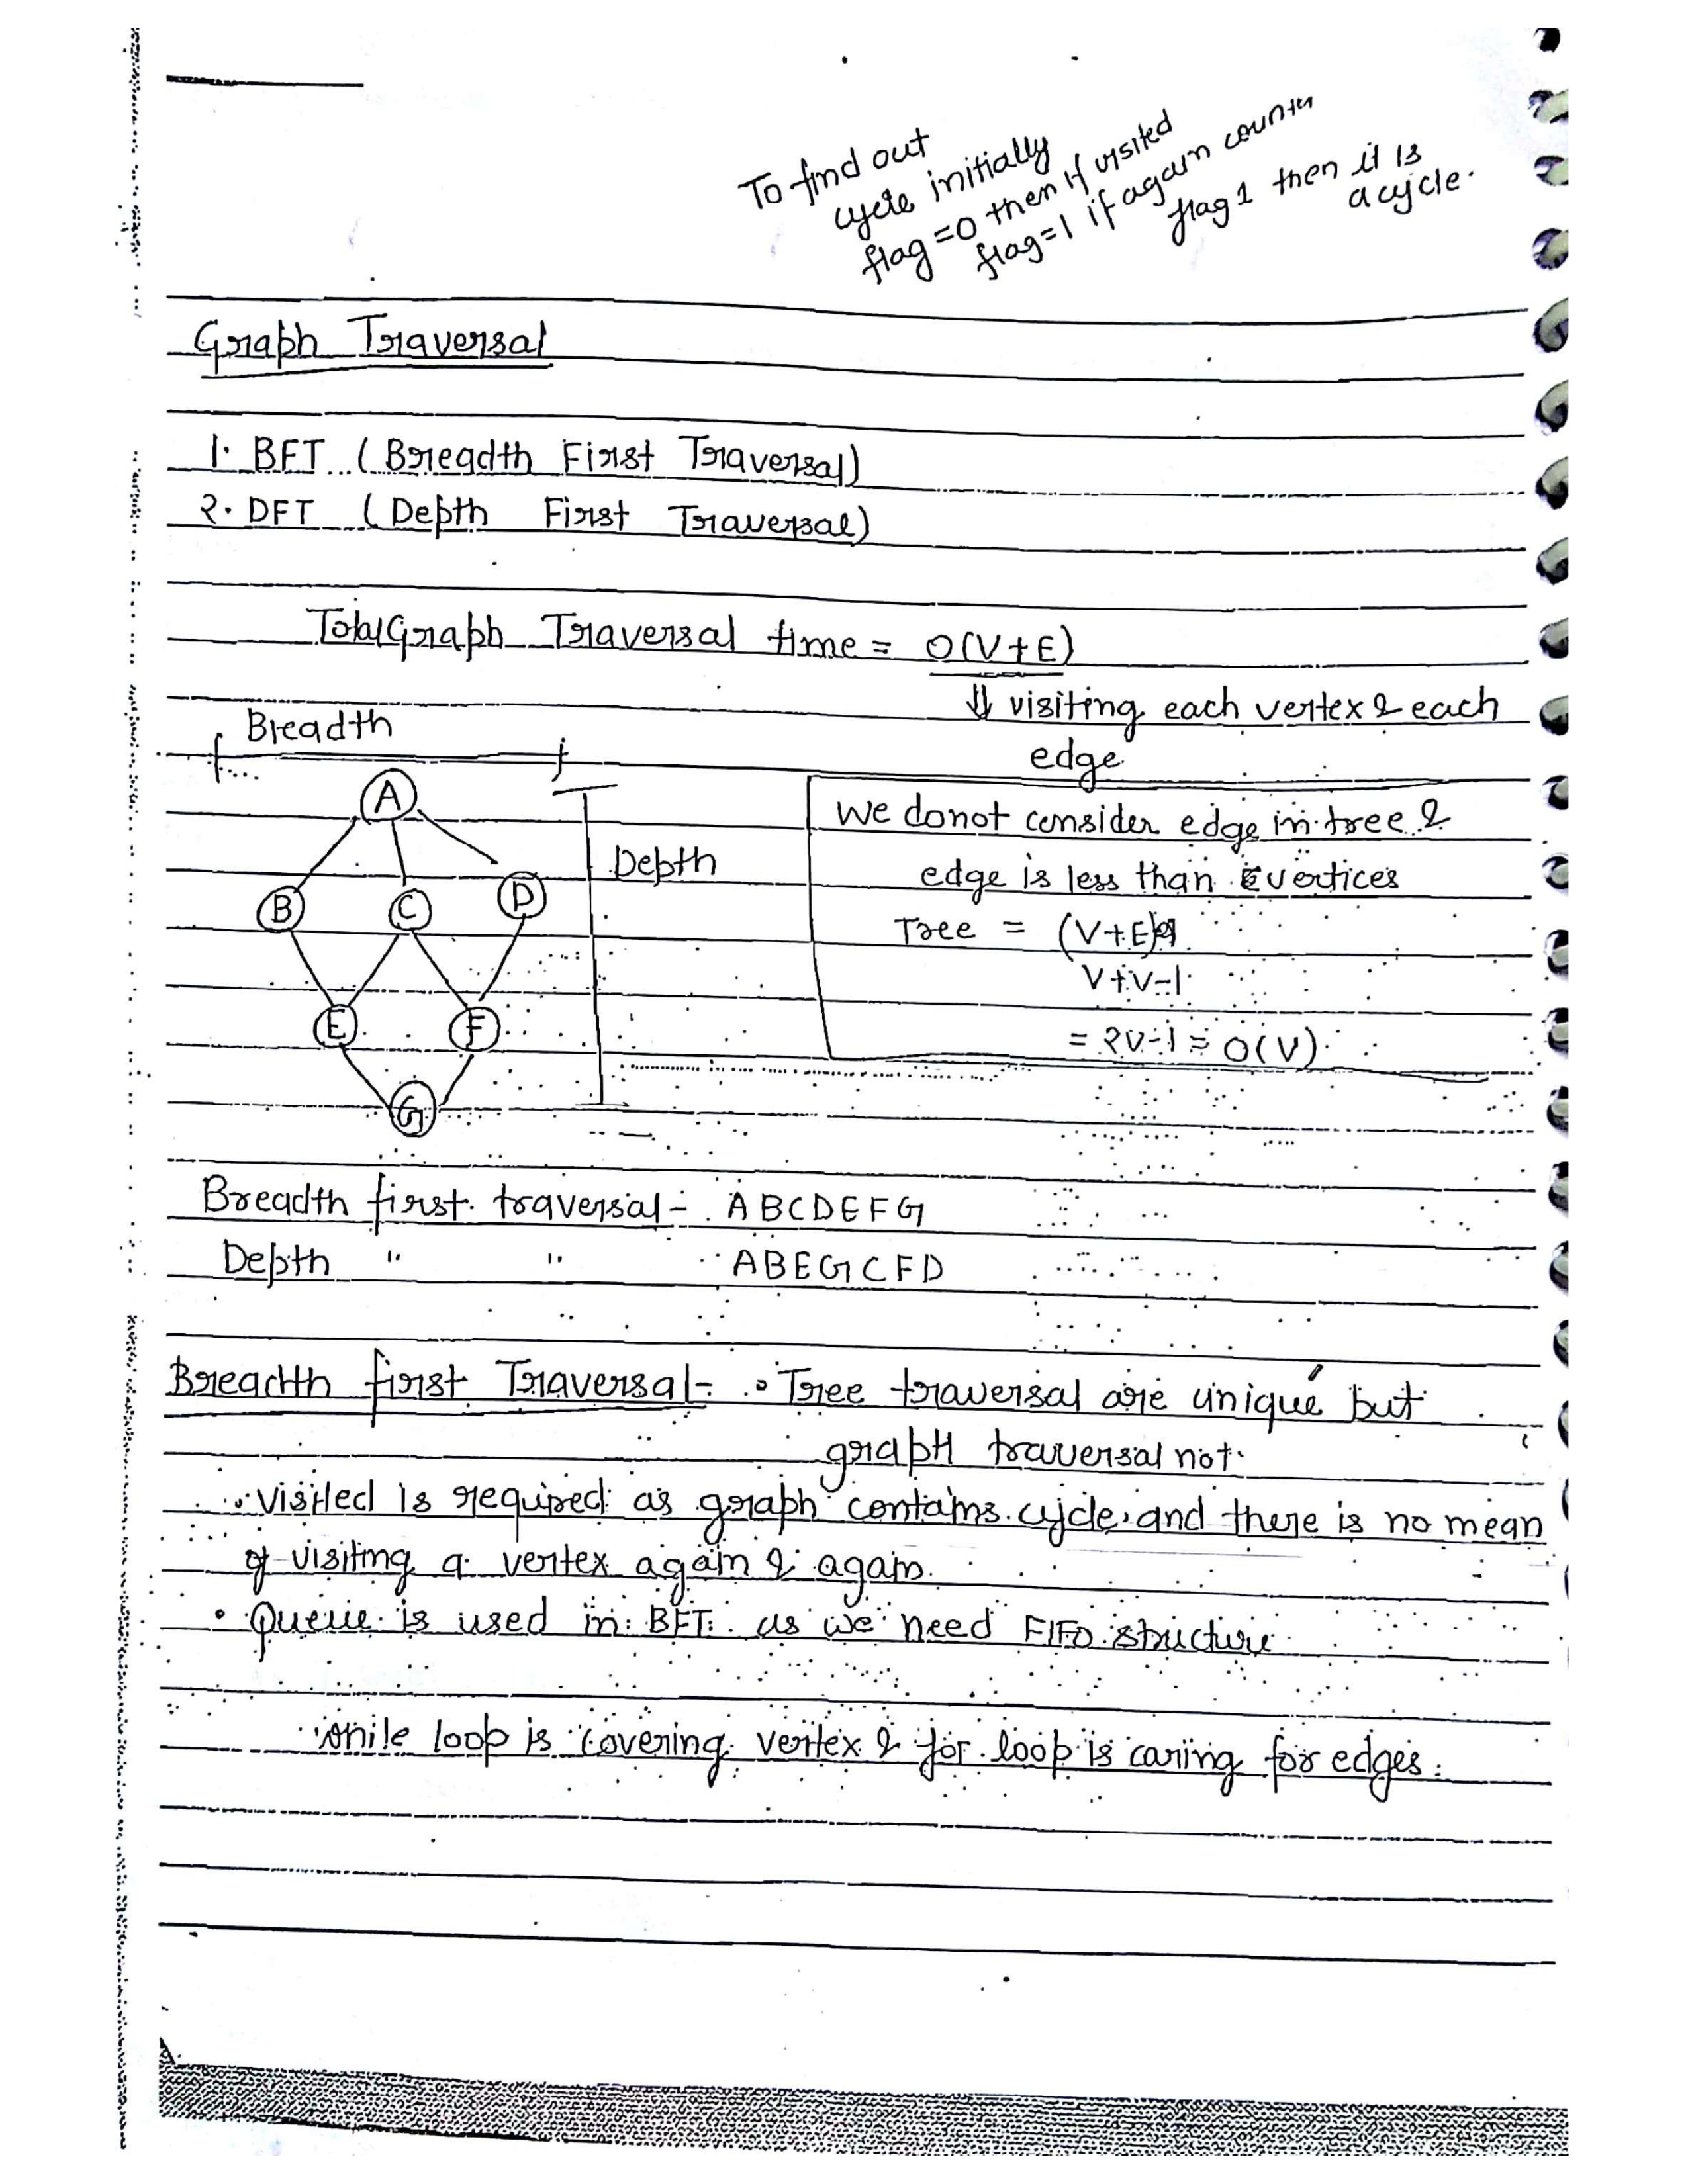 To find out
cycle initially
flag=0 then if visited
flag=1 if again counter
flag 1 then it is
a cycle.
Graph Traversal
1. BFT (Breadth First Traversal)
2. DFT (Depth First Traversal)
Total Graph Traversal time = O(V+E)
⇓ visiting each vertex & each
edge
Breadth
A
B
C
D
E
F
G
Depth
we donot consider edge in tree &
edge is less than vertices
Tree = (V+E)
V+V-1
= 2V-1 = O(V)
Breadth first traversal - ABCDEFG
Depth " " ABEGCFD
Breadth first Traversal - • Tree traversal are unique but
graph traversal not.
• visited is required as graph contains cycle, and there is no mean
of visiting a vertex again & again.
• Queue is used in BFT as we need FIFO structure
while loop is covering vertex & for loop is caring for edges.